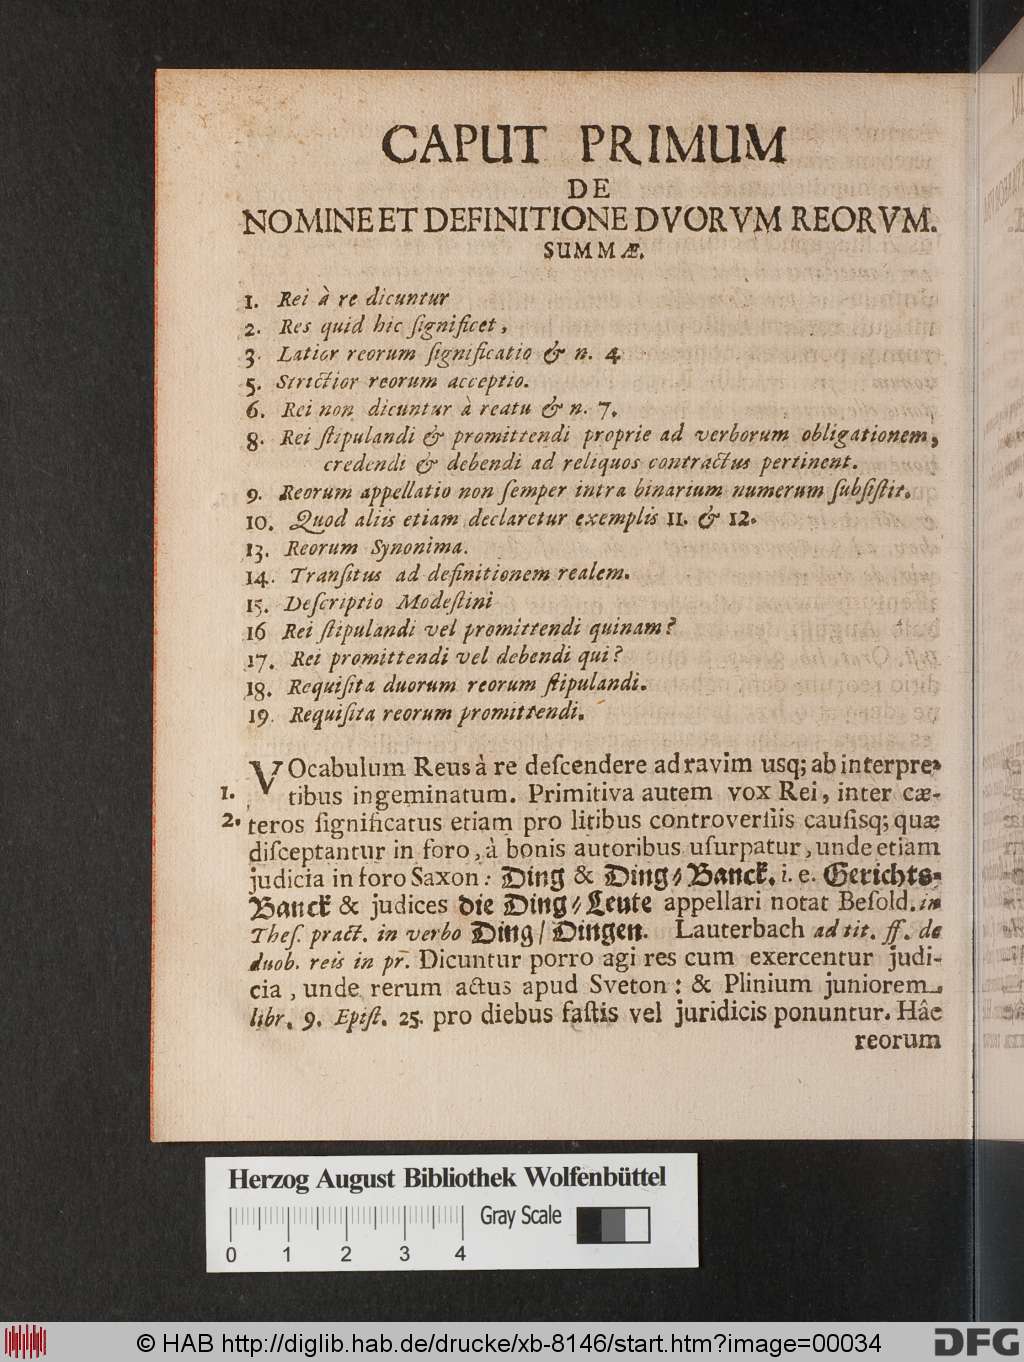 CAPUT PRIMUM
DE
NOMINE ET DEFINITIONE DVORVM REORVM.
SUMMÆ.
1. Rei à re dicuntur
2. Res quid hic ſignificet,
3. Latior reorum ſignificatio & n. 4.
5. Strictior reorum acceptio.
6. Rei non dicuntur à reatu & n. 7.
8. Rei ſtipulandi & promittendi proprie ad verborum obligationem,
credendi & debendi ad reliquos contractus pertinent.
9. Reorum appellatio non ſemper intra binarium numerum ſubſiſtit.
10. Quod aliis etiam declaretur exemplis 11. & 12.
13. Reorum Synonima.
14. Tranſitus ad definitionem realem.
15. Deſcriptio Modeſtini
16 Rei ſtipulandi vel promittendi quinam?
17. Rei promittendi vel debendi qui?
18. Requiſita duorum reorum ſtipulandi.
19. Requiſita reorum promittendi.
VOcabulum Reus à re deſcendere ad ravim usq; ab interpre-
1. tibus ingeminatum. Primitiva autem vox Rei, inter cæ-
2. teros ſignificatus etiam pro litibus controverſiis cauſisq; quæ
diſceptantur in foro, à bonis autoribus uſurpatur, unde etiam
judicia in foro Saxon: Ding & Ding⸗Banck. i. e. Gerichts⸗
Banck & judices die Ding⸗Leute appellari notat Beſold. in
Theſ. pract. in verbo Ding/ Dingen. Lauterbach ad tit. ff. de
duob. reis in pr. Dicuntur porro agi res cum exercentur judi-
cia, unde rerum actus apud Sveton: & Plinium juniorem
libr. 9. Epiſt. 25. pro diebus faſtis vel juridicis ponuntur. Hâc
reorum
Herzog August Bibliothek Wolfenbüttel
Gray Scale
0 1 2 3 4
© HAB http://diglib.hab.de/drucke/xb-8146/start.htm?image=00034
DFG